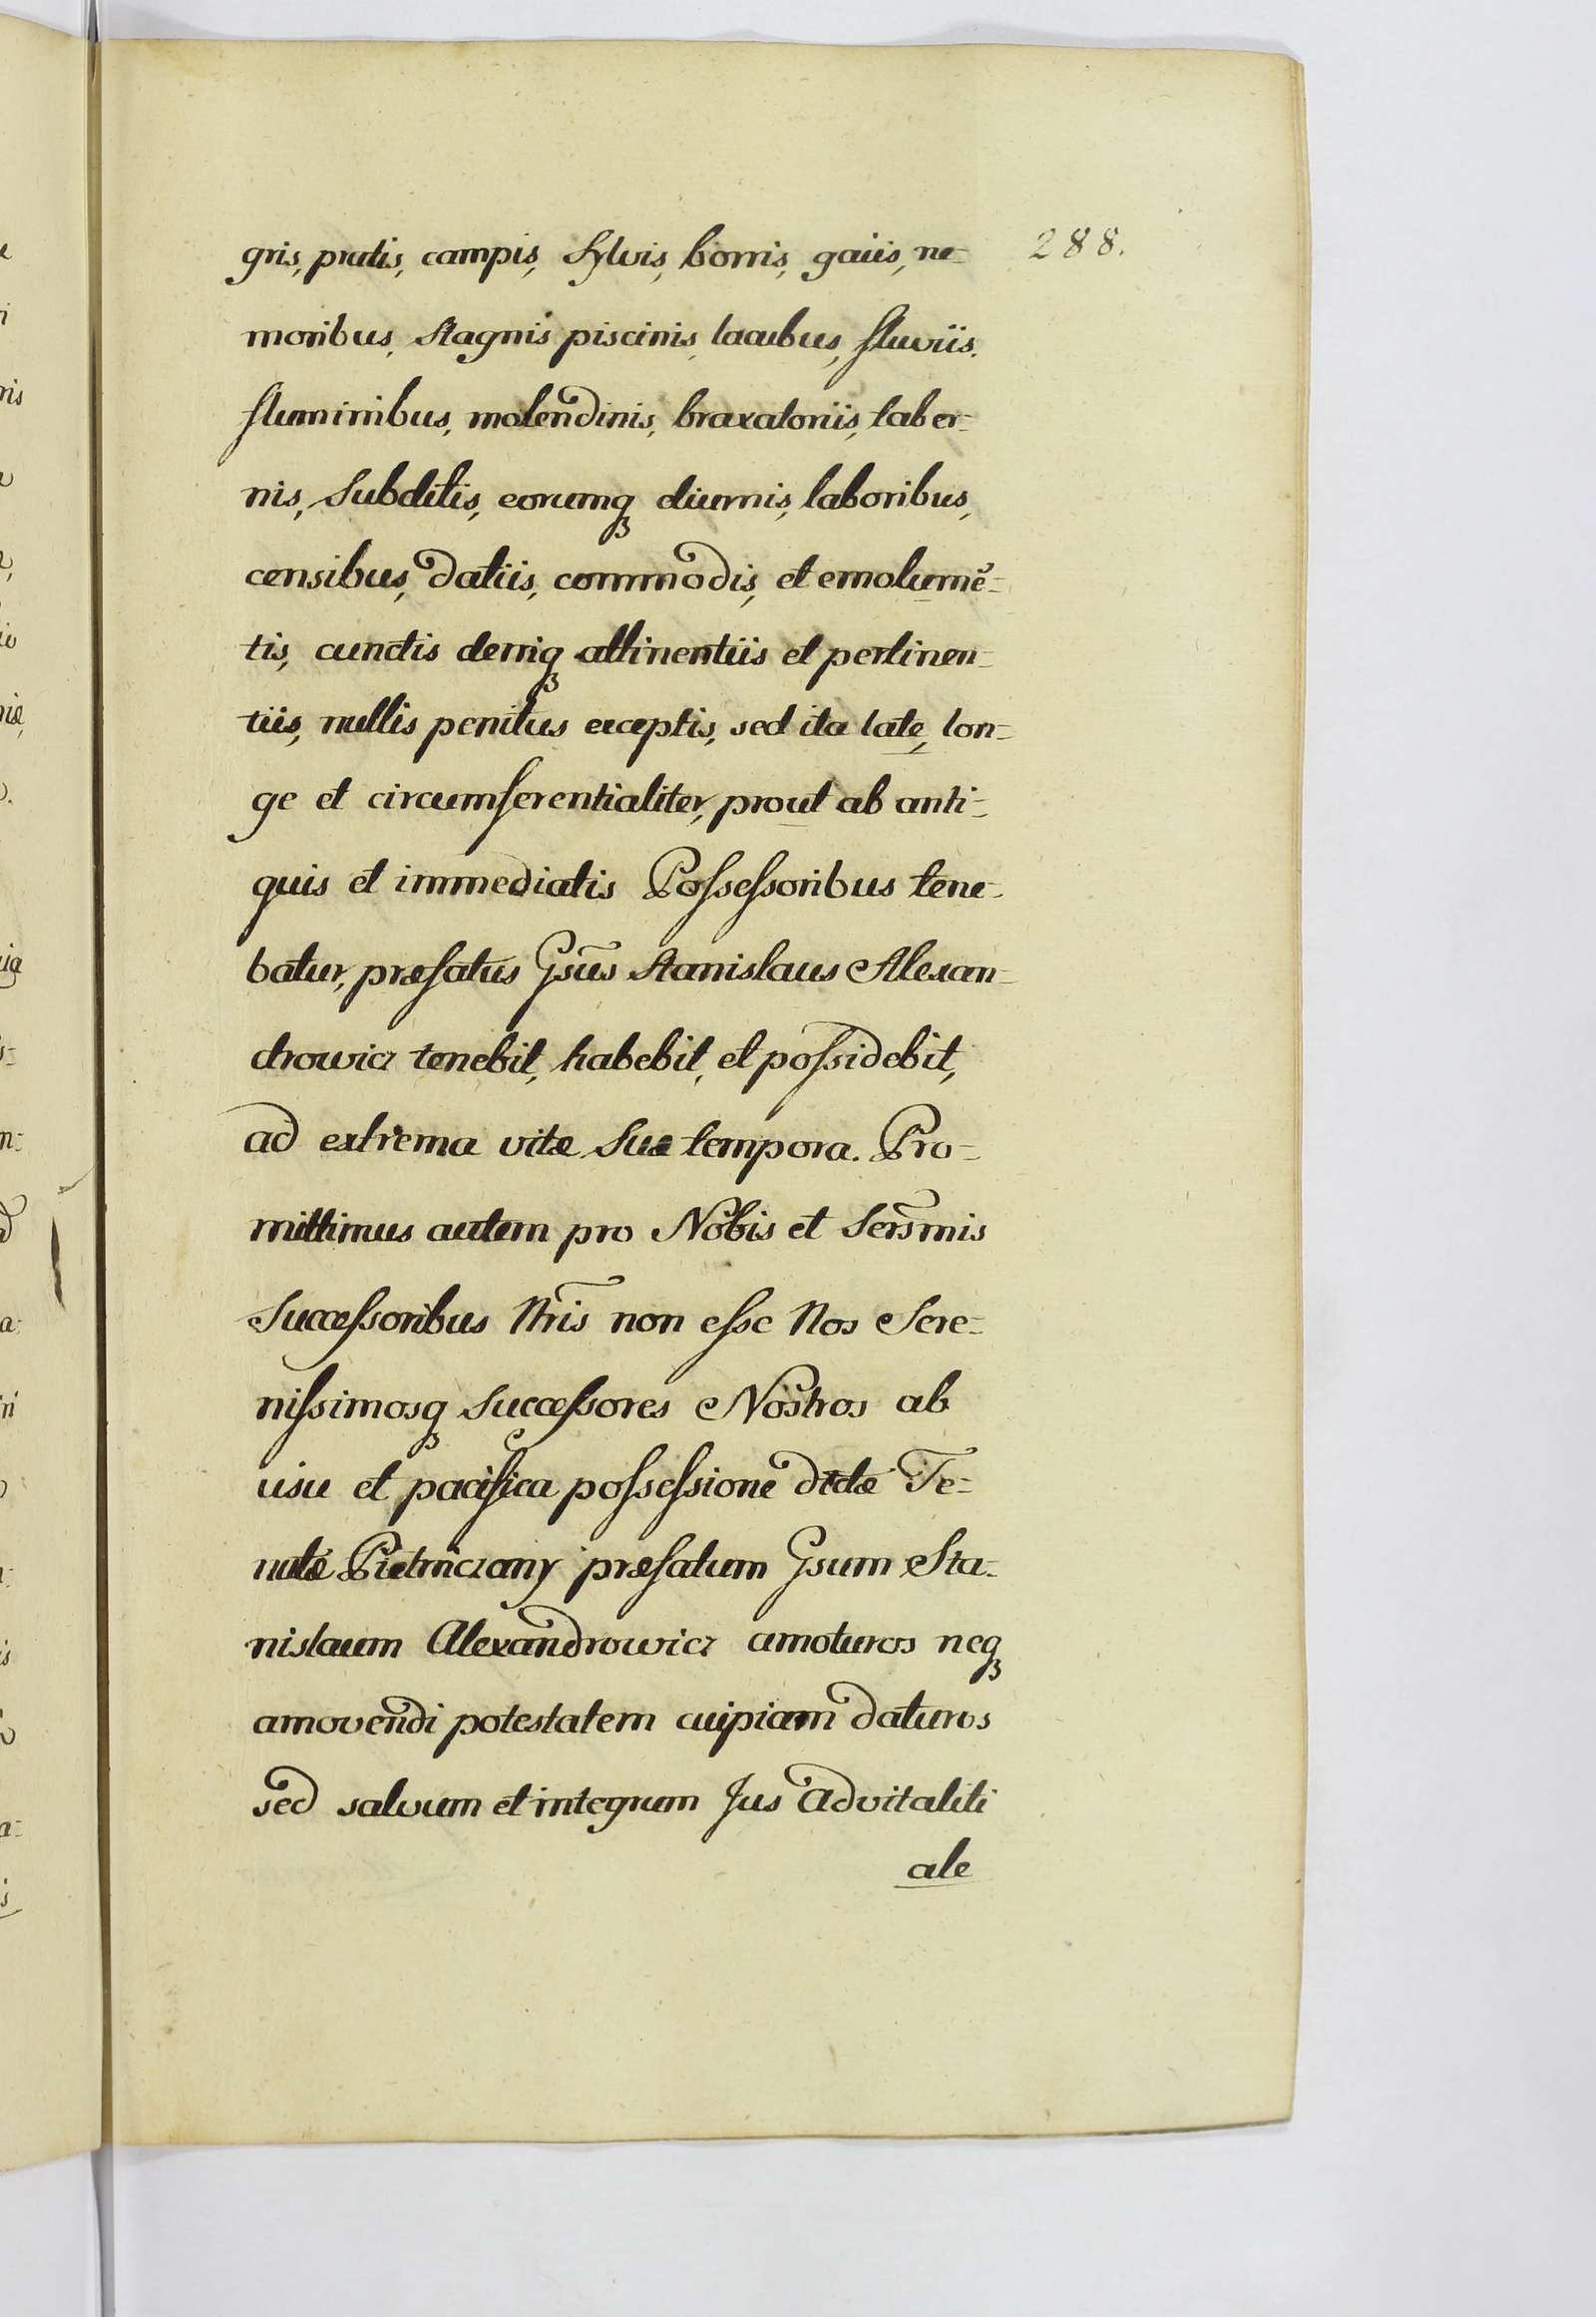 gris, pratis, campis, Sylvis, borris, gaiis, ne-
288.
moribus, Stagnis piscinis, lacubus, fluviis.
fluminibus, molendinis, braxatoriis, taber-
nis, Subditis, eorumq₃ diurnis, laboribus,
censibus, datiis, commodis, et emolumē-
tis, cunctis deniq₃ attinentiis et pertinen-
tiis, nullis penitus exceptis, sed ita latè, lon-
ge et circumferentialiter, prout ab anti-
quis et immediatis Possessoribus tene-
batur, præfatus Gsūs Stanislaus Alexan-
drowicz tenebit, habebit, et possidebit,
ad extrema vitæ Suæ tempora. Pro-
mittimus autem pro Nobis et Serm̃is
Successoribus Nr̃is non esse Nos Sere-
nissimosq₃ Successores Nostros ab
usu et pacifica possessione dctæ Te-
nutæ Pietniczany præfatum Gsum Sta-
nislaum Alexandrowicz amoturos neq₃
amovendi potestatem cuipiam daturos
sed salvum et integrum Jus Advitaliti
ale